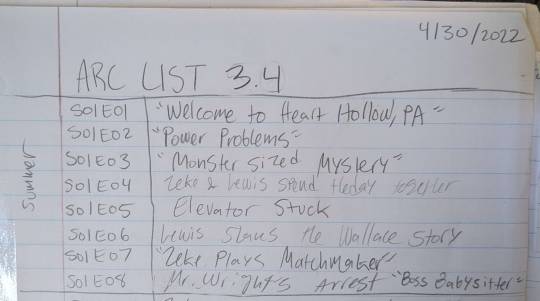 4/30/2022
ARC LIST 3.4
Summer
S01E01 "Welcome to Heart Hollow, PA"
S01E02 "Power Problems"
S01E03 "Monster Sized Mystery"
S01E04 Zeke & Lewis spend the day together
S01E05 Elevator Stuck
S01E06 Lewis the Wallace Story
S01E07 "Zeke Plays Matchmaker"
S01E08 Mr. Wright's Arrest "Boss Babysitter"